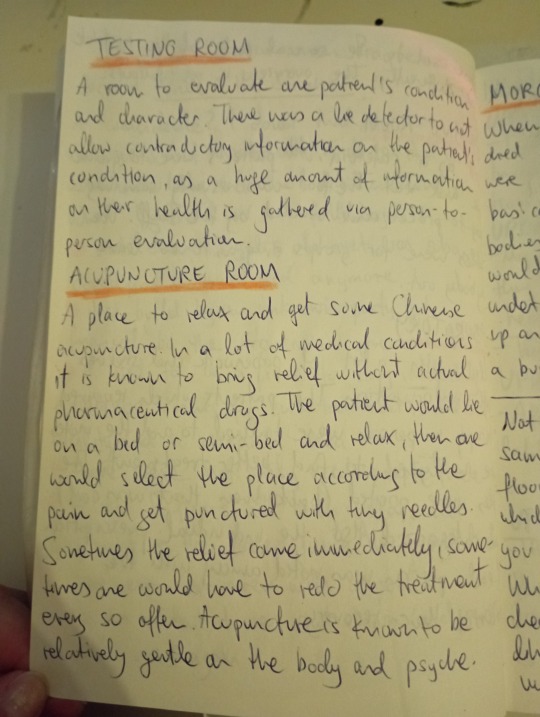 TESTING ROOM
A room to evaluate one patient's condition
and character. There was a lie detector to not
allow contradictory information on the patient's
condition, as a huge amount of information
on their health is gathered via person-to-
person evaluation.
ACUPUNCTURE ROOM
A place to relax and get some Chinese
acupuncture. In a lot of medical conditions
it is known to bring relief without actual
pharmaceutical drugs. The patient would lie
on a bed or semi-bed and relax, then one
would select the place according to the
pain and get punctured with tiny needles.
Sometimes the relief came immediately, some-
times one would have to redo the treatment
every so often. Acupuncture is known to be
relatively gentle on the body and psyche.
MORG
When
dred
were
basic
bodies
would
undet
up an
a bu
Not
sam
floo
which
you
Wh
che